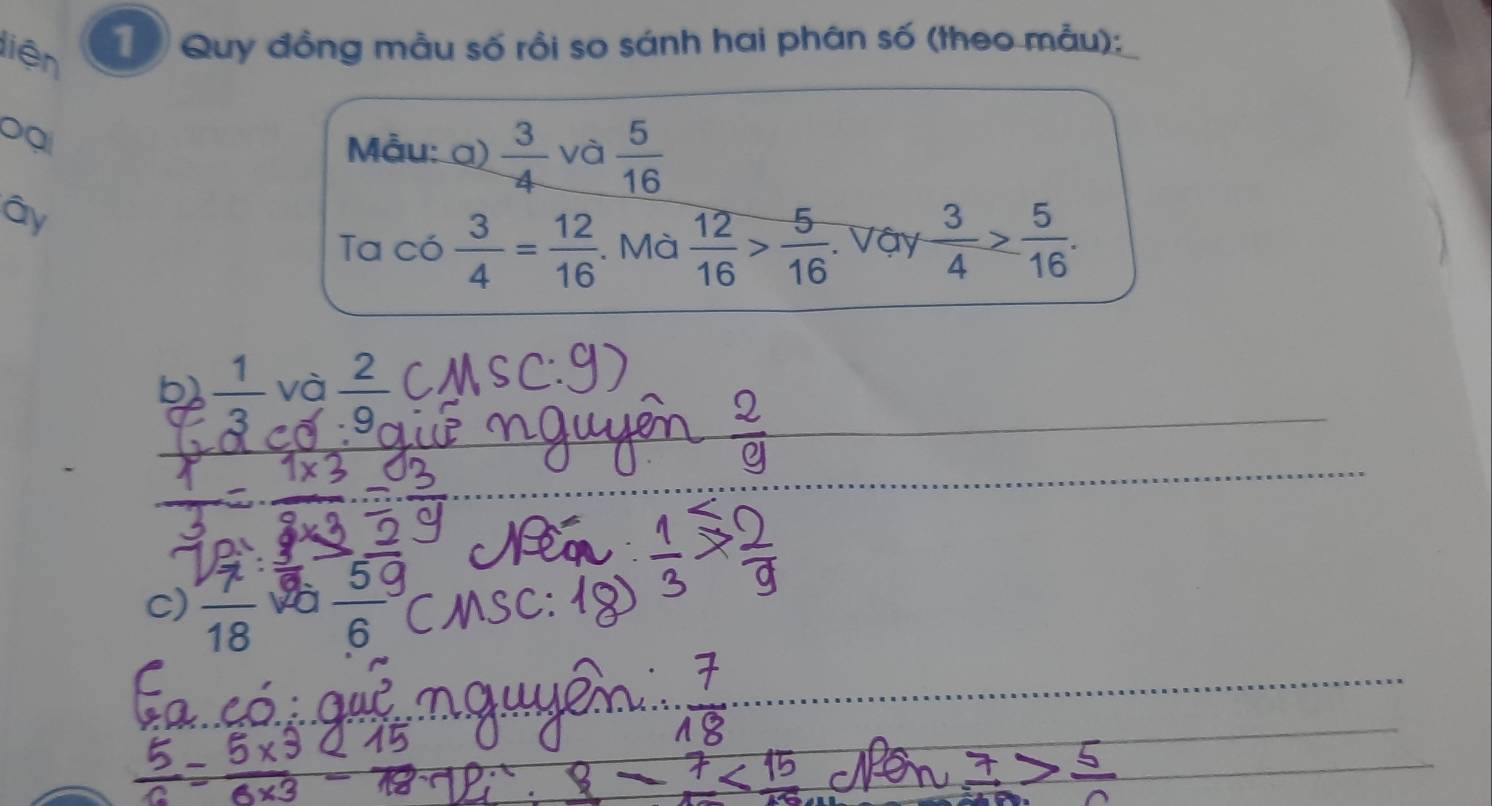 diện
1 Quy đồng mẫu số rồi so sánh hai phân số (theo mẫu):
oại
ây
Mẫu: a) 3/4 và 5/16
Ta có 3/4 = 12/16. Mà 12/16 > 5/16. Vậy 3/4 > 5/16.
b) 1/3 và 2/9 (MSC: 9)
Ta có: giữ nguyên 2/9
1/3 = 1×3/3×3 = 3/9
Vì: 3/9 > 2/9 Nên: 1/3 > 2/9
c) 7/18 và 5/6 (MSC: 18)
Ta có: giữ nguyên: 7/18
5/6 = 5×3/6×3 = 15/18 Vì: 7 < 15 Nên 7 > 5